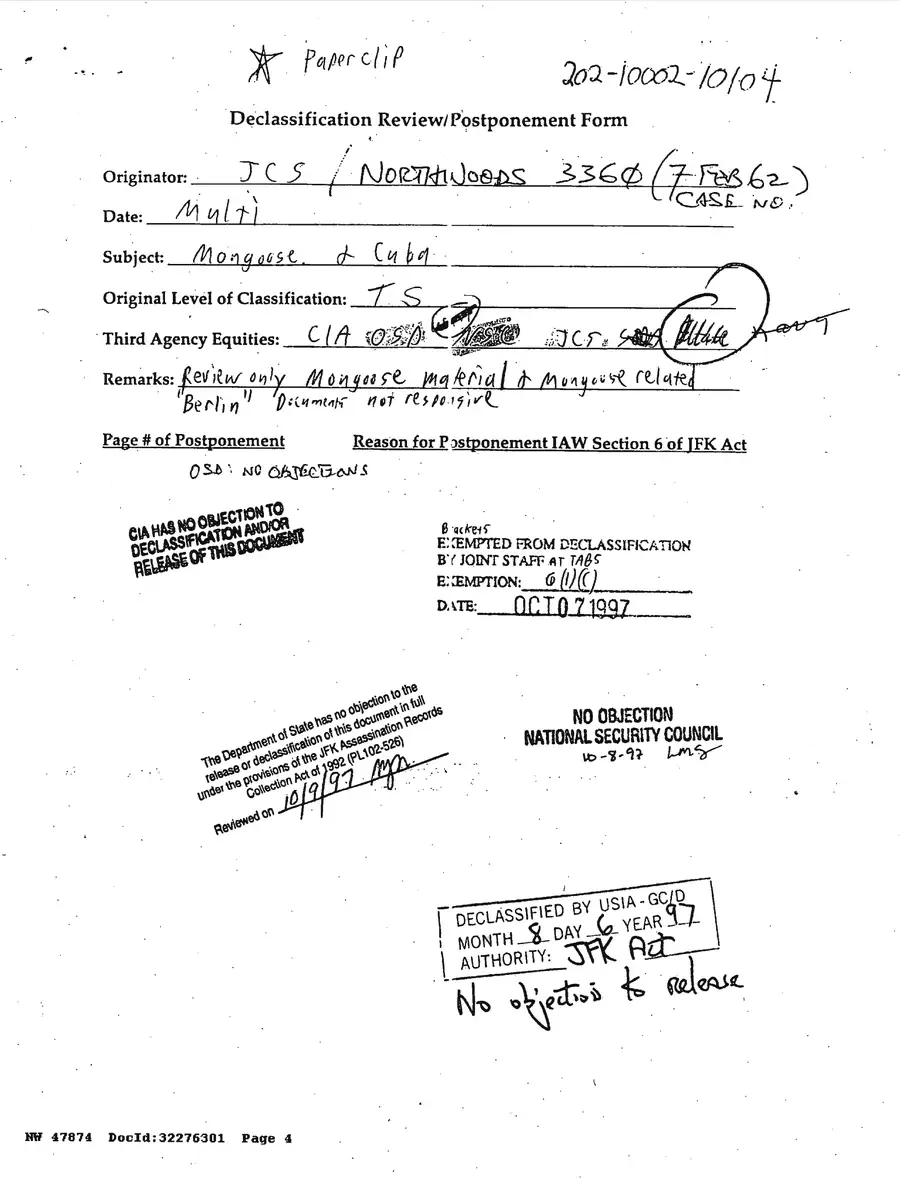 ☆ Paperclip
202-10002-10104
Declassification Review/Postponement Form
Originator: JCS / NORTHWOODS 3360 (7 FEB 62)
CASE NO.
Date: Multi
Subject: Mongoose & Cuba
Original Level of Classification: TS
Third Agency Equities: CIA OSD JCS State Navy
Remarks: Review only Mongoose material & Mongoose related
"Berlin" Documents not responsive
Page # of Postponement Reason for Postponement IAW Section 6 of JFK Act
OSD: NO OBJECTIONS
CIA HAS NO OBJECTION TO
DECLASSIFICATION AND/OR
RELEASE OF THIS DOCUMENT
Brackets
EXEMPTED FROM DECLASSIFICATION
BY JOINT STAFF AT TABS
EXEMPTION: 6(1)(C)
DATE: OCT 07 1997
The Department of State has no objection to the
release or declassification of this document in full
under the provisions of the JFK Assassination Records
Collection Act of 1992 (PL102-526)
Reviewed on 10/9/97
NO OBJECTION
NATIONAL SECURITY COUNCIL
10-8-97 LMS
DECLASSIFIED BY USIA-GC/D
MONTH 8 DAY 6 YEAR 97
AUTHORITY: JFK Act
No objection to release
NW 47874 DocId:32276301 Page 4